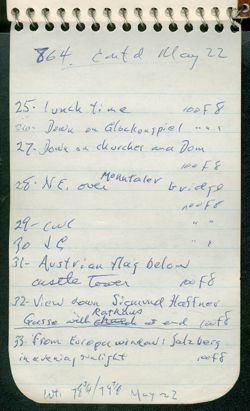 864. cont'd May 22
25- lunch time 100 F8
26- Down on Glockenspiel " " "
27- Down on churches and Dom
100 F8
28- N.E. over Monutaler bridge
100 F8
29- " "
30 " "
31- Austrian flag below
castle Tower 100 f8
32- View down Sigmund Haffner
Gasse with Rathaus at end 100 f8
33- From Europa window: Salzberg
in evening sunlight 100 f8
May 22